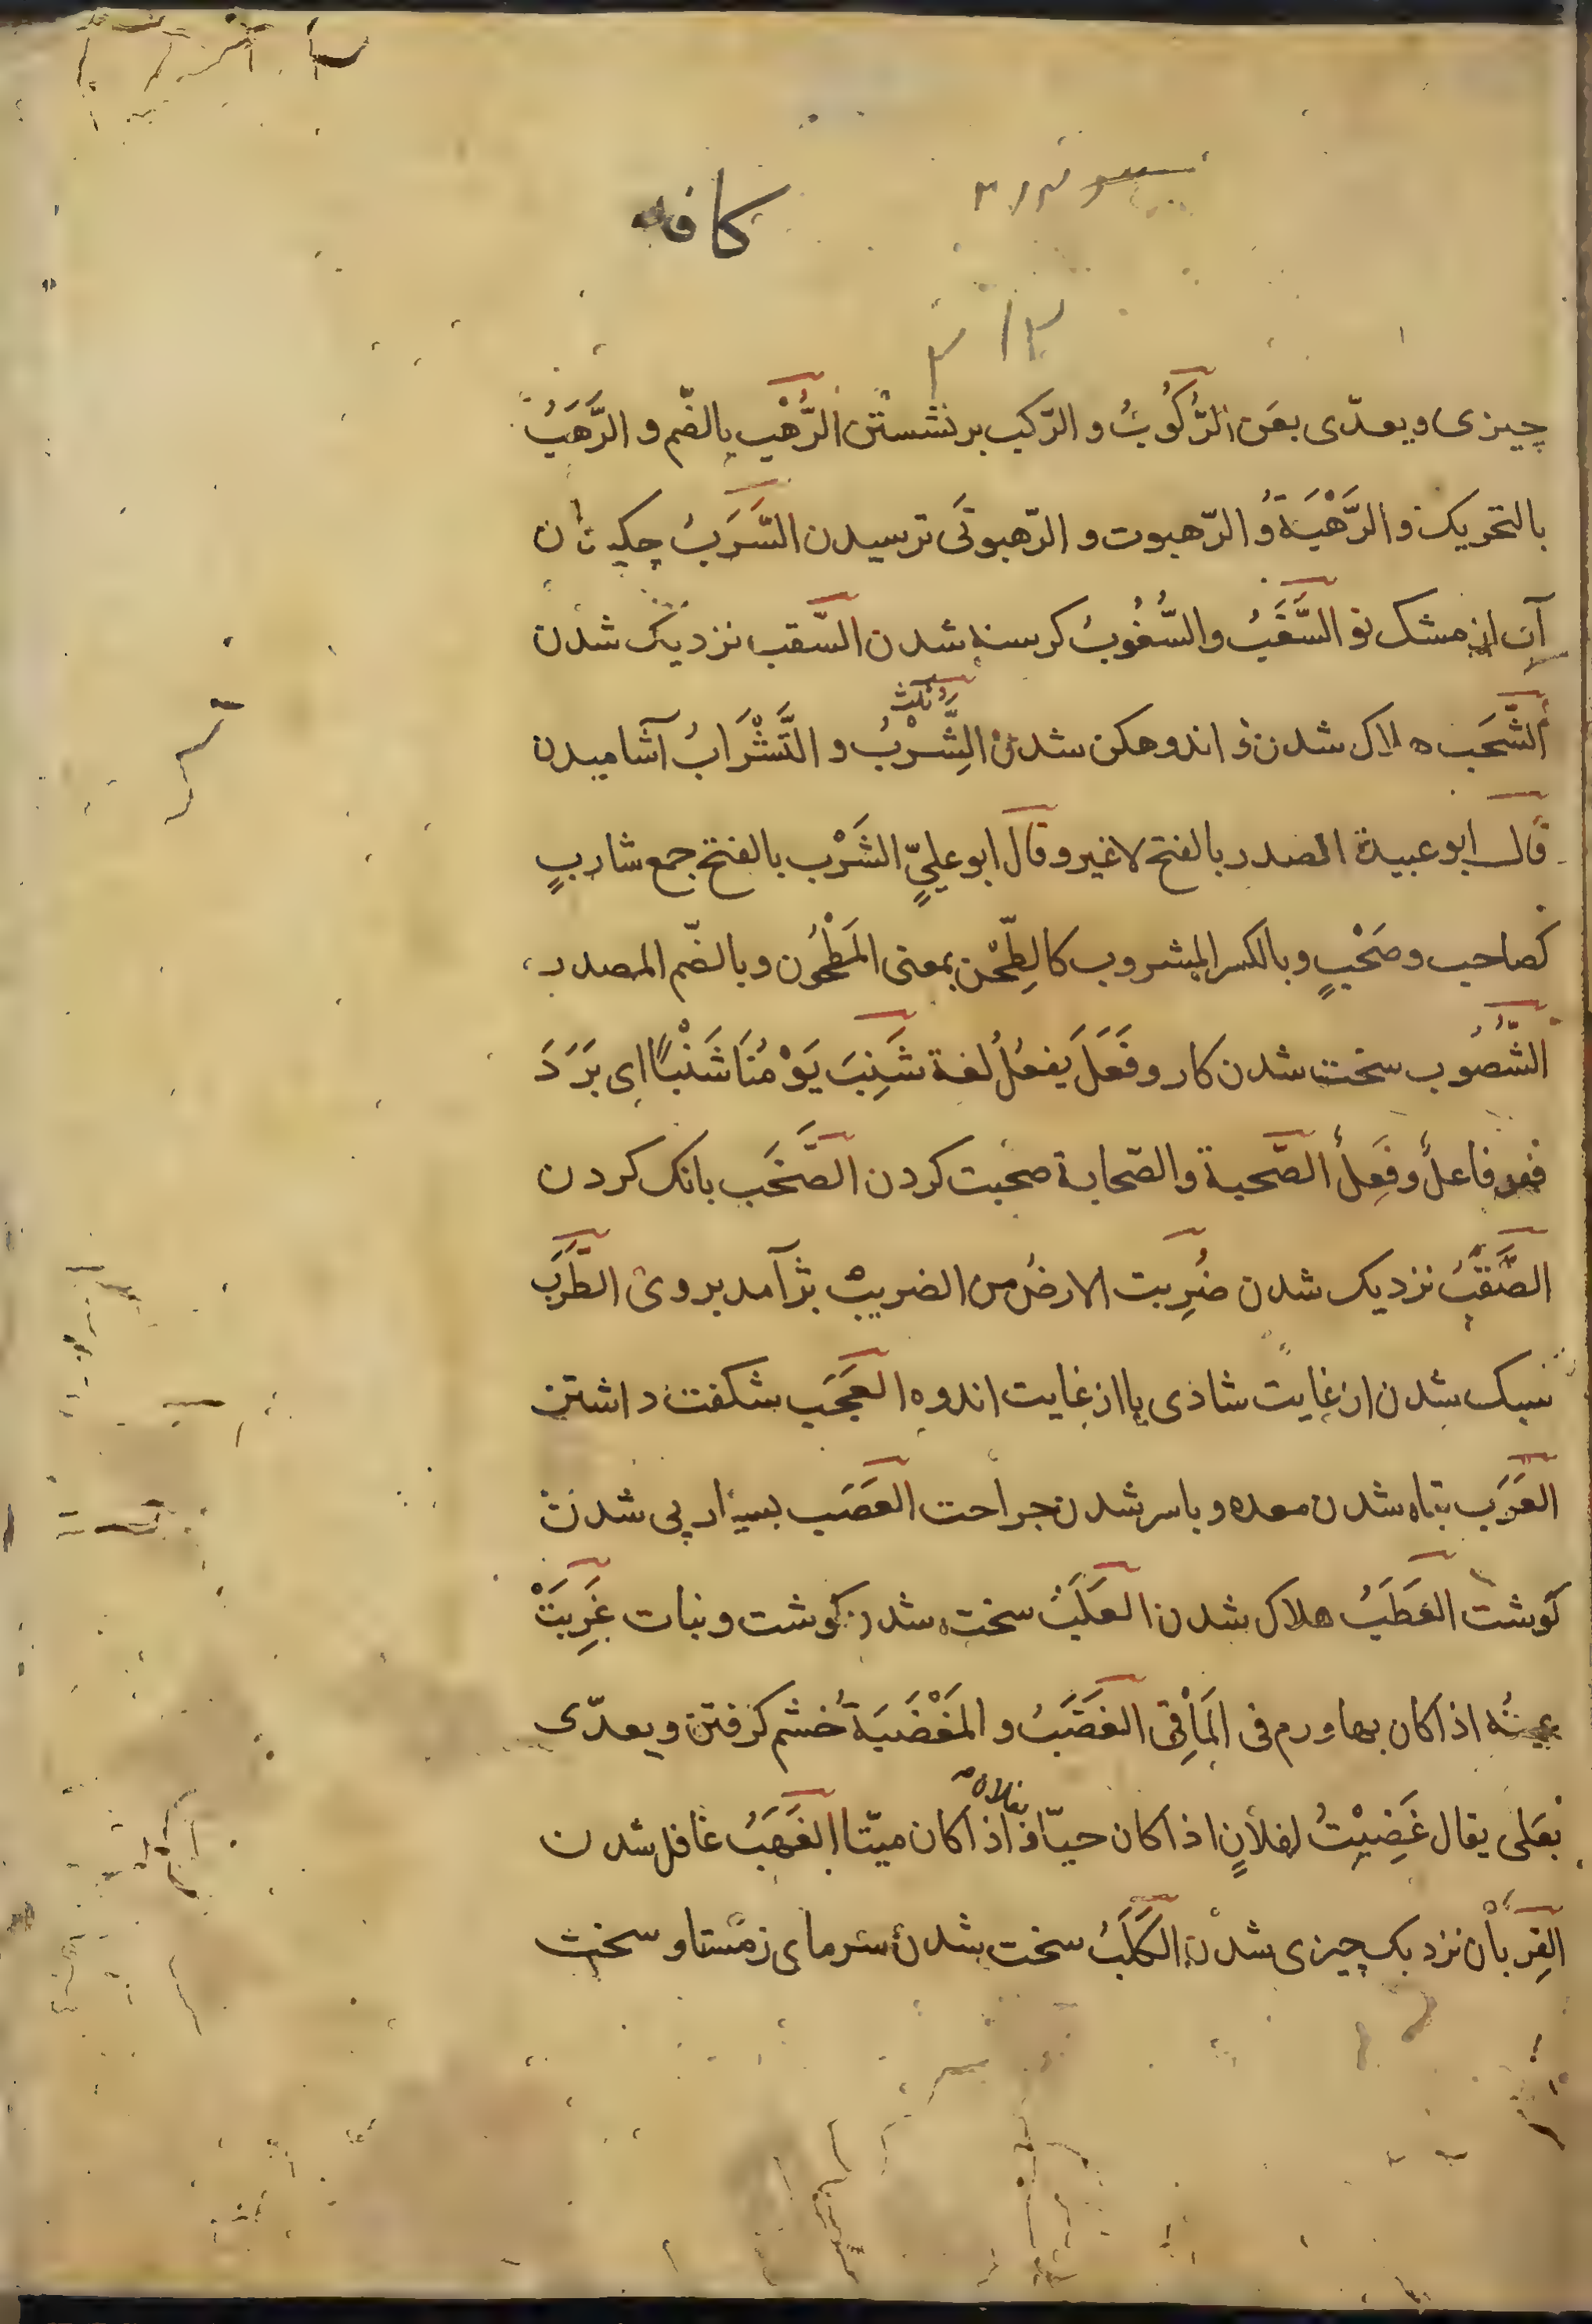 کافه
چیزی و یعدّی بعَن الرُّکُوبُ و الرّکیب برنشستن الرُّهْب بالضّم و الرَّهَبُ
بالتحریک و الرَّهْبَةُ و الرّهبوت و الرّهبوتَی ترسیدن السَّرَبُ چکیدن
آب از مشک نو السَّغَبُ والسُّغُوبُ کرسنه شدن السَّقب نزدیک شدن
الشَّحَب هلاک شدن و اندوهکن شدن الشِّرْبُ و التَّشْرَابُ آشامیدن
قال ابو عبیدة المصدر بالفتح لاغیر و قال ابو علیٍّ الشَرْب بالفتح جمع شاربٍ
کصاحب و صَحْبٍ و بالکسر المشروب کالطِّحْن بمعنی المَطْحُون و بالضّم المصدر
الشُّصُوب سخت شدن کار و فَعَلَ یفعُلُ لغة شَنِبَ یَوْمُنَا شَنْبًا ای بَرَدَ
فهو فاعلٌ و فَعِلٌ الصّحبة و الصّحابة صحبت کردن الصَّخَب بانک کردن
الصَّقَبُ نزدیک شدن ضُرِبت الارضُ من الضریب بژ آمد بر وی الطَّرَب
سبک شدن از غایت شاذی یا از غایت اندوه العَجَب شکفت داشتن
العَرَب تباه شدن معده و باسر شدن جراحت العَصَب بسیار پی شدن
کوشت العَطَبُ هلاک شدن العَلَبُ سخت شدن کوشت و نبات غَرِبَتْ
عینُه اذا کان بها ورم فی المَأْقِی الغَضَبُ و المَغْضَبَةُ خشم کرفتن و یعدّی
بعَلی یقال غَضِبْتُ لفلانٍ اذا کان حیّا و بفلان اذا کان میّتا الغَهَبُ غافل شدن
القِرْبان نزدیک چیزی شدن الکَلَبُ سخت شدن سرمای زمستا و سخت